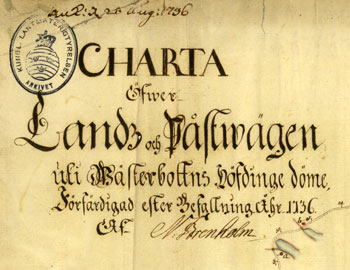 d. 28 Aug: 1736
KUNGL. LANTMÄTERISTYRELSEN
ARKIVET
CHARTA
Öfwer
Landz och Påstwägen
uti Wästerbottns Höfdinge döme,
Förfärdigad efter Befallning Åhr 1736.
Af